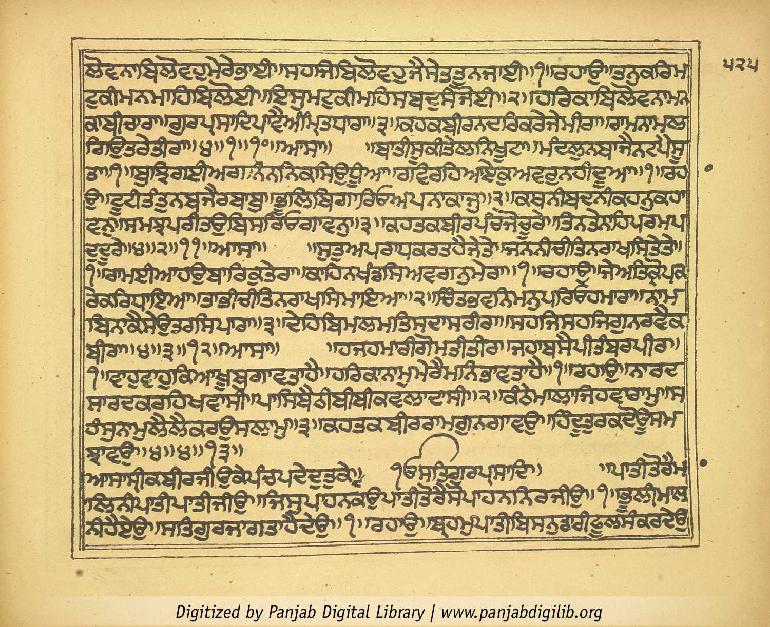 ਲੋਵਨਾਬਿਲੋਵਹੁਮੇਰੇਭਾਈ॥ਸਹਜਿਬਿਲੋਵਹੁਜੈਸੇਤਤੁਨਜਾਈ॥੧॥ਰਹਾਉ॥ਤਨੁਕਰਿਮ
ਟਕੀਮਨਮਾਹਿਬਿਲੋਈ॥ਇਸੁਮਟਕੀਮਹਿਸਬਦੁਸੰਜੋਈ॥੨॥ਹਰਿਕਾਬਿਲੋਵਨਾਮਨ
ਕਾਬੀਚਾਰਾ॥ਗੁਰਪ੍ਰਸਾਦਿਪਾਵੈਅੰਮ੍ਰਿਤਧਾਰਾ॥੩॥ਕਹੁਕਬੀਰਨਦਰਿਕਰੇਜੇਮੀਰਾ॥ਰਾਮਨਾਮਲ
ਗਿਉਤਰੇਤੀਰਾ॥੪॥੧॥੧੦॥ਆਸਾ॥ ਬਾਤੀਸੂਕੀਤੇਲੁਨਿਖੂਟਾ॥ਮੰਦਲੁਨਬਾਜੈਨਟਪੈਸੂ
ਤਾ॥੧॥ਬੁਝਿਗਈਅਗਨਿਨਨਿਕਸਿਓਧੂੰਆ॥ਰਵਿਰਹਿਆਏਕੁਅਵਰੁਨਹੀਦੂਆ॥੧॥ਰਹ
ਉ॥ਟੂਟੀਤੰਤੁਨਬਜੈਰਬਾਬੁ॥ਭੂਲਿਬਿਗਾਰਿਓਅਪਨਾਕਾਜੁ॥੨॥ਕਥਨੀਬਦਨੀਕਹਨੁਕਹਾ
ਵਨੁ॥ਸਮਝਪਰੀਤਉਬਿਸਰਿਓਗਾਵਨੁ॥੩॥ਕਹਤਕਬੀਰਪੰਚਜੋਚੂਰੇ॥ਤਿਨਤੇਨਾਹਿਪਰਮਪ
ਦੁਦੂਰੇ॥੪॥੨॥੧੧॥ਆਸਾ॥ ॥ਸੁਤੁਅਪਰਾਧਕਰਤਹੈਜੇਤੇ॥ਜਨਨੀਚੀਤਿਨਰਾਖਸਿਤੇਤੇ॥
੧॥ਰਾਮਈਆਹਉਬਾਰਿਕੁਤੇਰਾ॥ਕਾਹੇਨਖੰਡਸਿਅਵਗਨੁਮੇਰਾ॥੧॥ਰਹਾਉ॥ਜੇਅਤਿਕ੍ਰੋਪਕ
ਰੇਕਰਿਧਾਇਆ॥ਤਾਭੀਚੀਤਿਨਰਾਖਸਿਮਾਇਆ॥੨॥ਚਿੰਤਭਵਨਿਮਨੁਪਰਿਓਹਮਾਰਾ॥ਨਾਮ
ਬਿਨਾਕੈਸੇਉਤਰਸਿਪਾਰਾ॥੩॥ਦੇਹਿਬਿਮਲਮਤਿਸਦਾਸਰੀਰਾ॥ਸਹਜਿਸਹਜਿਗੁਨਰਵੈਕ
ਬੀਰਾ॥੪॥੩॥੧੨॥ਆਸਾ॥ ॥ਹਜਹਮਾਰੀਗੋਮਤੀਤੀਰ॥ਜਹਾਬਸੈਪੀਤੰਬਰਪੀਰ॥
੧॥ਵਾਹੁਵਾਹੁਕਿਆਖੂਬੁਗਾਵਤਾਹੈ॥ਹਰਿਕਾਨਾਮੁਮੇਰੈਮਨਿਭਾਵਤਾਹੈ॥੧॥ਰਹਾਉ॥ਨਾਰਦ
ਸਾਰਦਕਰਹਿਖਵਾਸੀ॥ਪਾਸਿਬੈਠੀਬੀਬੀਕਵਲਾਦਾਸੀ॥੨॥ਕੰਠੇਮਾਲਾਜਿਹਵਾਰਾਮੁ॥ਸ
ਹੰਸਨਾਮੁਲੈਲੈਕਰਉਸਲਾਮੁ॥੩॥ਕਹਤਕਬੀਰਰਾਮਗੁਨਗਾਵਉ॥ਹਿੰਦੂਤੁਰਕਦੋਊਸਮ
ਝਾਵਉ॥੪॥੪॥੧੩॥
ਆਸਾਸ੍ਰੀਕਬੀਰਜੀਉਕੇਪੰਚਪਦੇਦੁਤੁਕੇ॥ ੧ਓਸਤਿਗੁਰਪ੍ਰਸਾਦਿ॥ ॥ਪਾਤੀਤੋਰੈਮ
ਲਿਨੀਪਾਤੀਪਾਤੀਜੀਉ॥ਜਿਸੁਪਾਹਨਕਉਪਾਤੀਤੋਰੈਸੋਪਾਹਨਨਿਰਜੀਉ॥੧॥ਭੂਲੀਮਾਲ
ਨੀਹੈਏਉ॥ਸਤਿਗੁਰਜਾਗਤਾਹੈਦੇਉ॥੧॥ਰਹਾਉ॥ਬ੍ਰਹਮੁਪਾਤੀਬਿਸਨੁਡਾਰੀਫੂਲਸੰਕਰਦੇਉ
੫੨੫
Digitized by Panjab Digital Library | www.panjabdigilib.org